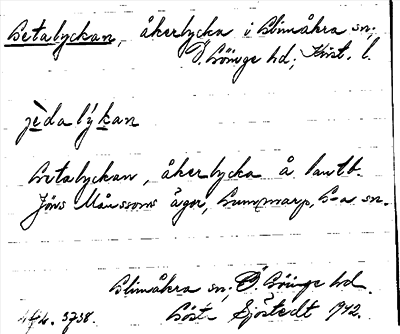 Getalyckan, åkerlycka i Glimåkra sn,
Ö. Göinge hd, Krist. l.
jèda lýkan
Getalyckan, åkerlycka å lantb.
Jöns Månssons ägor, Gummarp, G-a sn.
Glimåkra sn, Ö. Göinge hd.
Gösta Sjöstedt 1942.
3738.